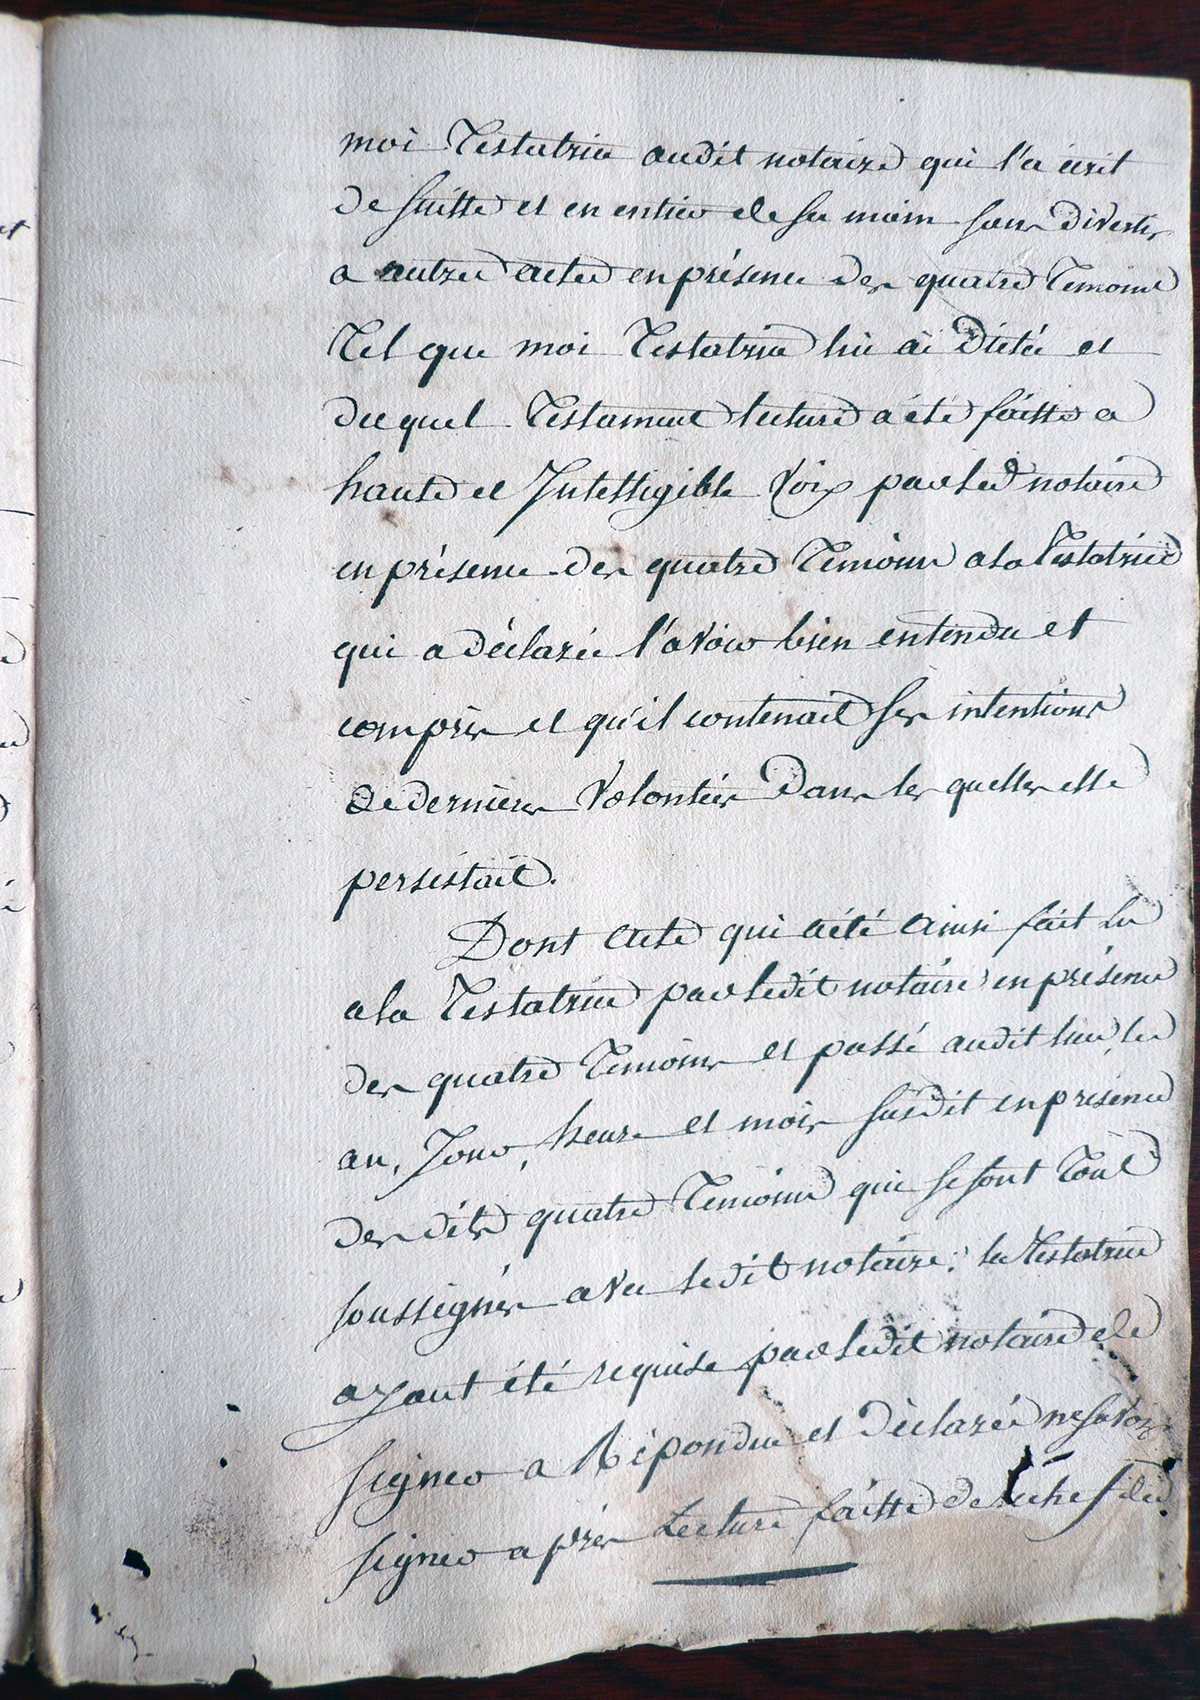 moi Testatrice audit notaire qui l'a écrit
de suitte et en entier de sa main sans divertir
a autre acte en présence des quatre Temoins
Tel que moi Testatrice lui ai dictée et
duquel Testament lecture a été faitte a
haute et Intelligible Voix par led notaire
en présence des quatre Temoins a la Testatrice
qui a déclarée l'avoir bien entendu et
compris et qu'il contenait ses intentions
de dernieres Volontées Dans les quelles elle
persistait.
Dont acte qui a été ainsi fait lu
a la Testatrice par ledit notaire en présence
des quatre Temoins et passé audit lieu, les
an, Jour, heure et mois susdit en présence
des dits quatre Temoins qui se sont Tous
soussignés avec ledit notaire; la Testatrice
ayant été requise par ledit notaire de
signer a Répondu et Déclarée ne savoir
signer après Lecture faitte de rechef de